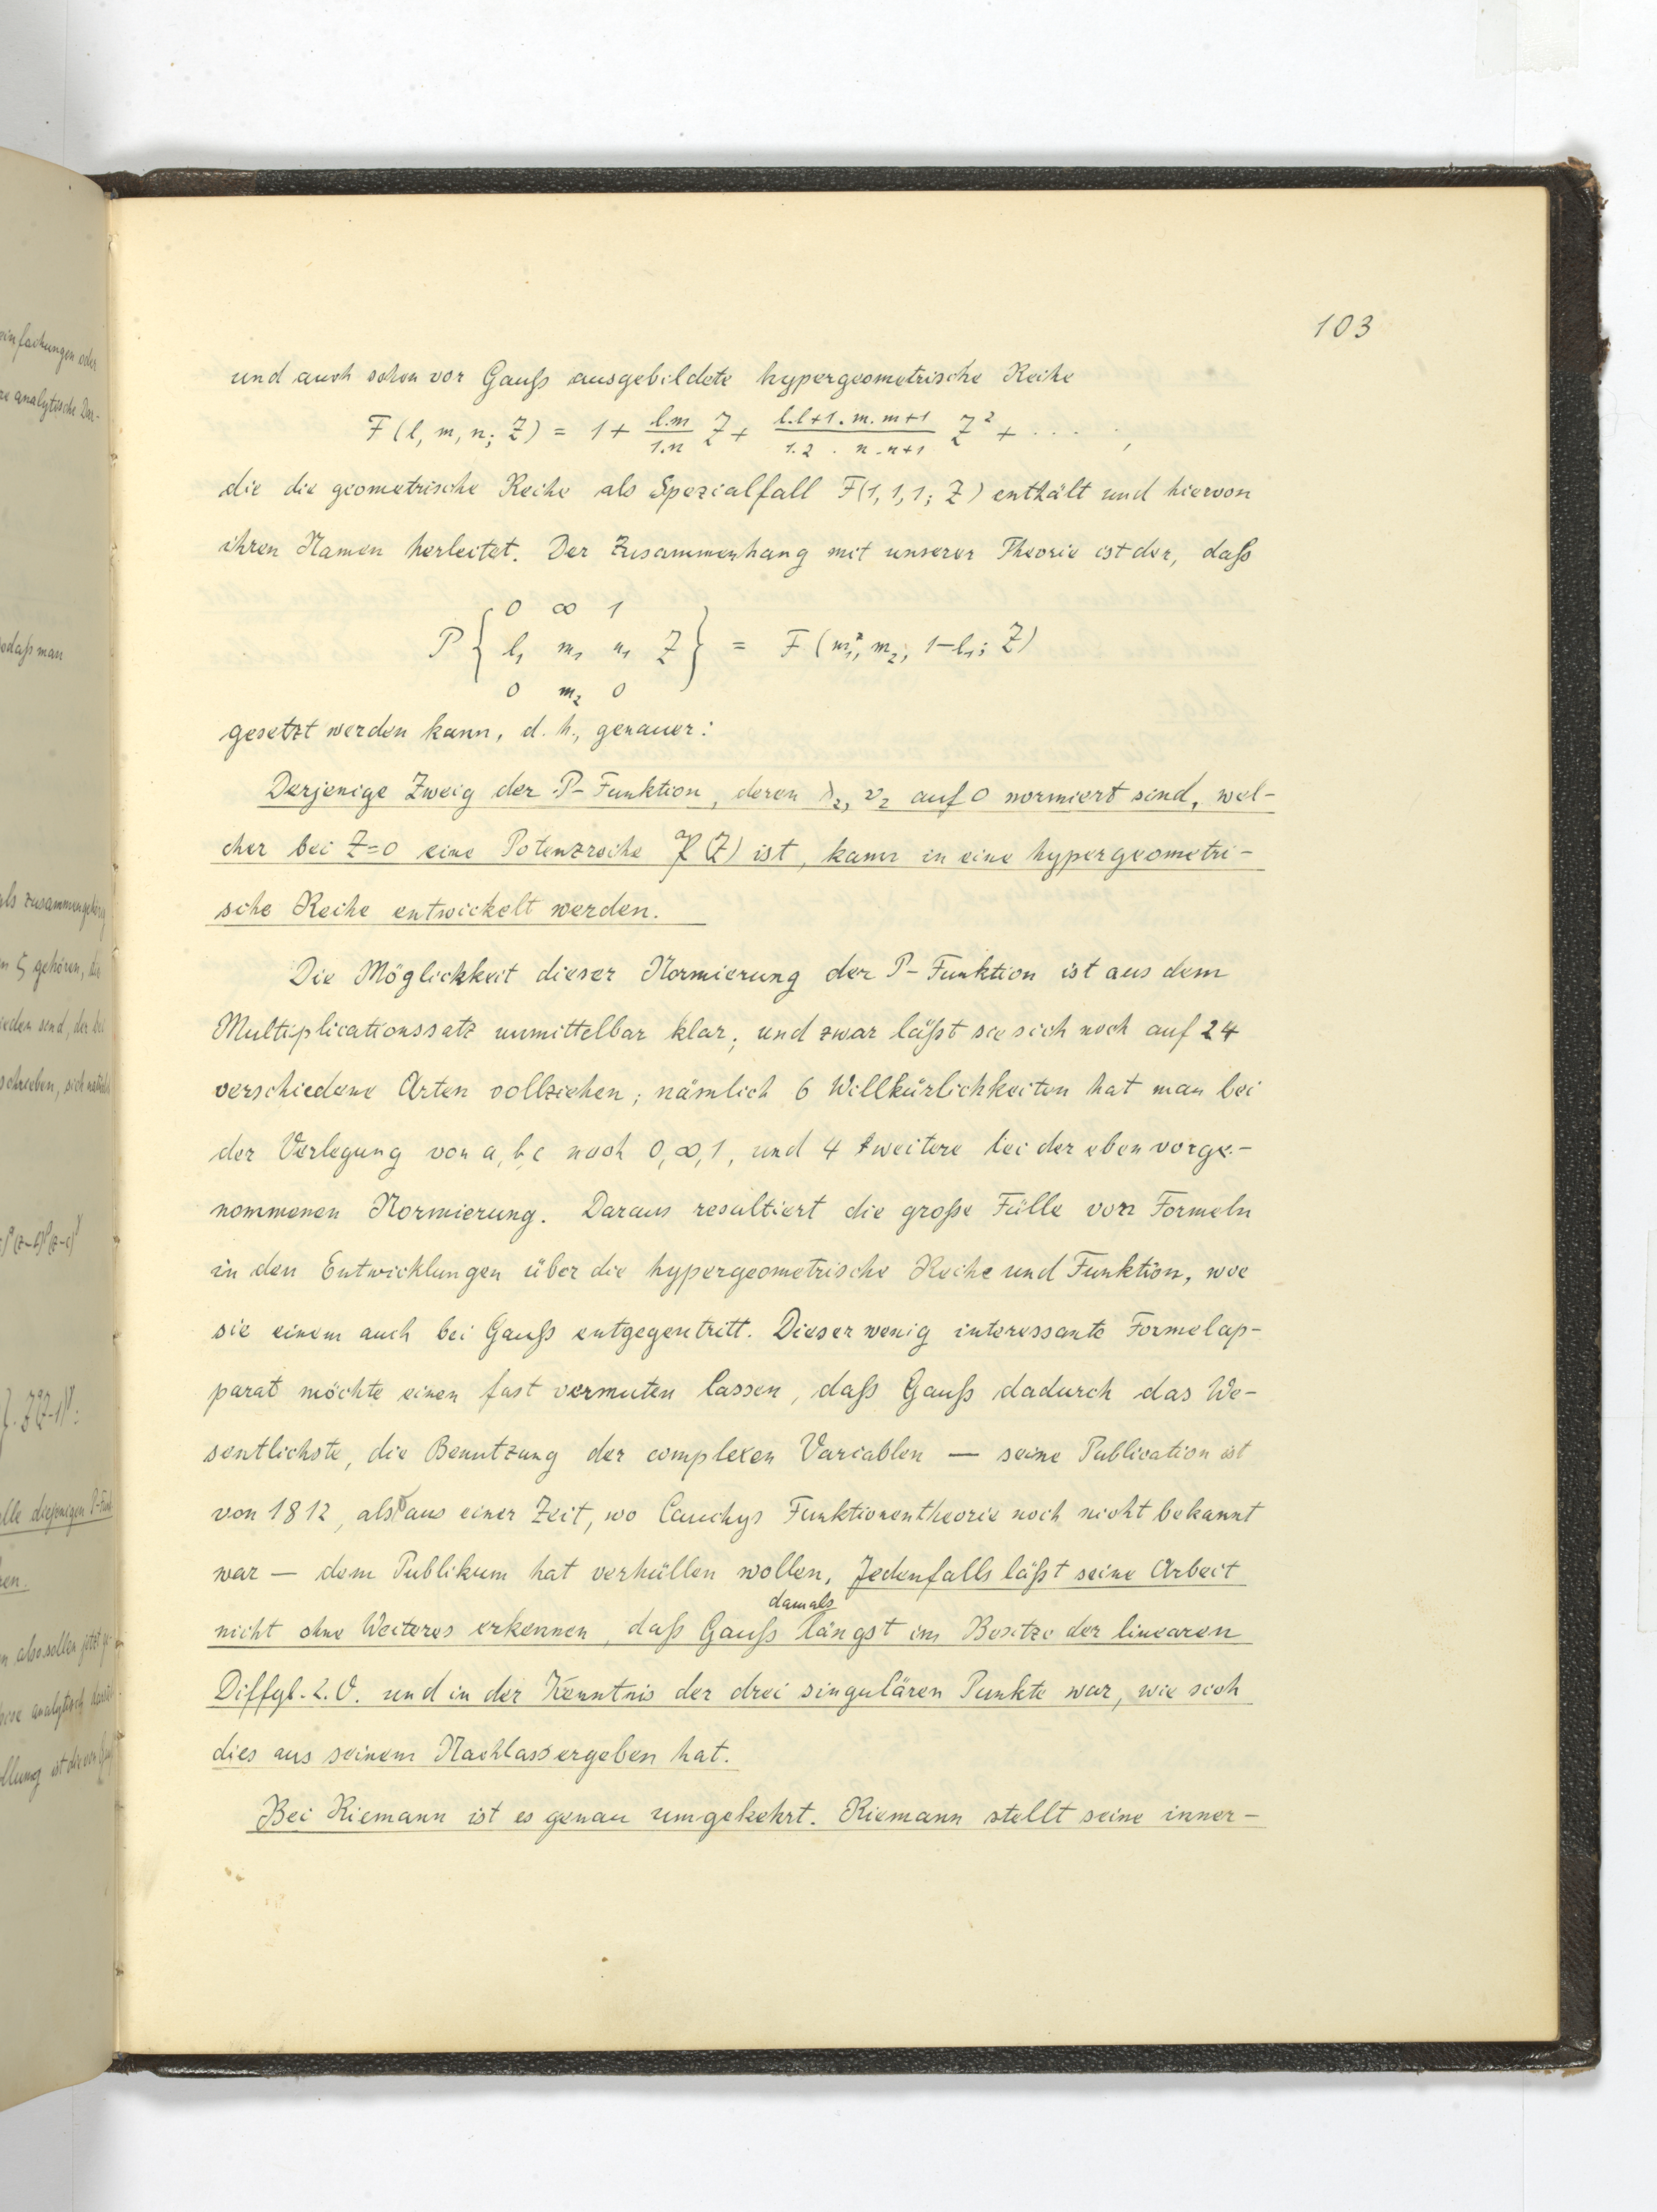 103
und auch schon vor Gauß ausgebildete hypergeometrische Reihe
F(l, m, n; Z) = 1 + \frac{l.m}{1.n} Z + \frac{l.l+1.m.m+1}{1.2 . n.n+1} Z² + · · · · ,
die die geometrische Reihe als Spezialfall F(1, 1, 1; Z) enthält und hiervon
ihren Namen herleitet. Der Zusammenhang mit unserer Theorie ist der, daß
0 ∞ 1
P { l₁ m₁ n₁ Z } = F (m₁, m₂, 1-l₁; Z)
0 m₂ 0
gesetzt werden kann, d. h., genauer:
Derjenige Zweig der P-Funktion, deren λ₂, ν₂ auf 0 normiert sind, wel-
cher bei Z=0 eine Potenzreihe P(Z) ist, kann in eine hypergeometri-
sche Reihe entwickelt werden.
Die Möglichkeit dieser Normierung der P-Funktion ist aus dem
Multiplicationssatz unmittelbar klar; und zwar läßt sie sich noch auf 24
verschiedene Arten vollziehen; nämlich 6 Willkürlichkeiten hat man bei
der Verlegung von a, b, c nach 0, ∞, 1, und 4 weitere bei der eben vorge-
nommenen Normierung. Daraus resultiert die große Fülle von Formeln
in den Entwicklungen über die hypergeometrische Reihe und Funktion, wie
sie einem auch bei Gauß entgegentritt. Dieser wenig interessante Formelap-
parat möchte einen fast vermuten lassen, daß Gauß dadurch das We-
sentlichste, die Benutzung der complexen Variablen — seine Publication ist
von 1812, also aus einer Zeit, wo Cauchys Funktionentheorie noch nicht bekannt
war — dem Publikum hat verhüllen wollen. Jedenfalls läßt seine Arbeit
damals
nicht ohne Weiteres erkennen, daß Gauß längst im Besitze der linearen
Diffgl. 2. O. und in der Kenntnis der drei singulären Punkte war, wie sich
dies aus seinem Nachlass ergeben hat.
Bei Riemann ist es genau umgekehrt. Riemann stellt seine inner-